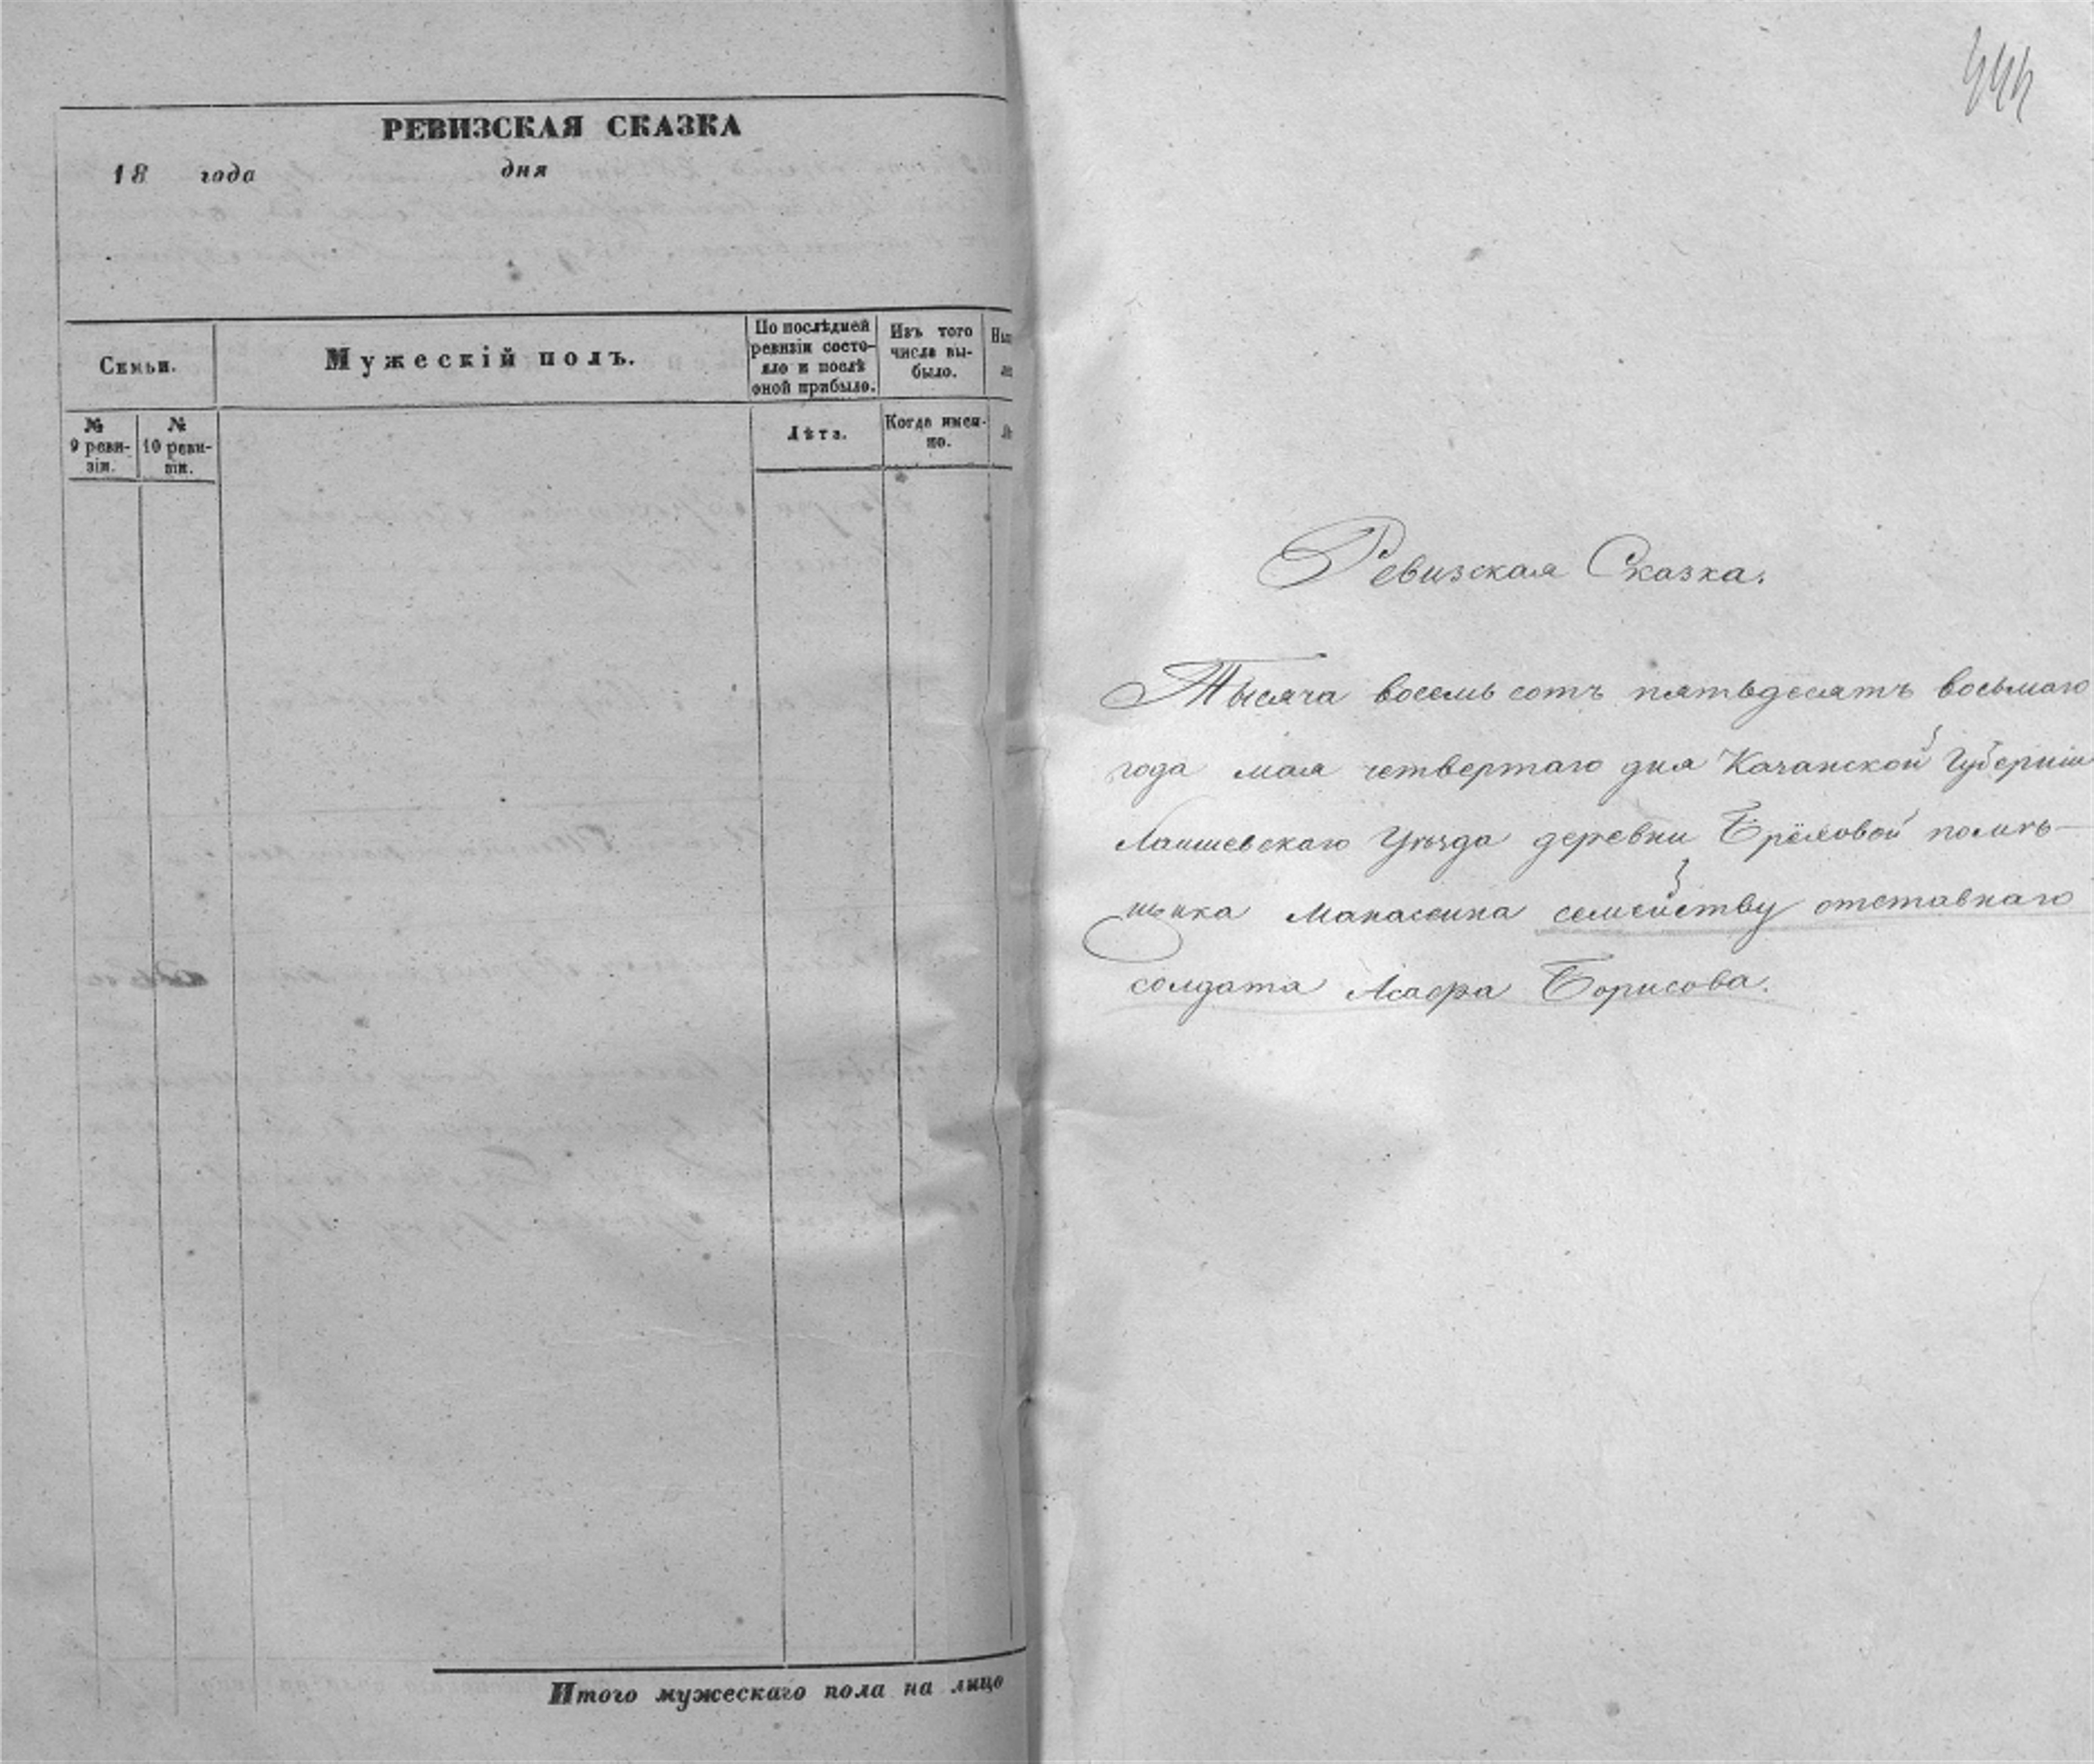 РЕВИЗСКАЯ СКАЗКА
18 года дня
Семьи.
Мужескій полъ.
По послѣдней
ревизіи состо-
яло и послѣ
оной прибыло.
Изъ того
числа вы-
было.
№
9 реви-
зіи.
№
10 реви-
зіи.
Лѣта.
Когда имен-
но.
Итого мужескаго пола на лицо
444
Ревизская Сказка.
Тысяча восемь сотъ пятьдесятъ восьмаго
года мая четвертаго дня Казанской Губерніи
Лаишевскаго Уѣзда деревни помѣ-
щика Манасеина семейству отставнаго
солдата Асафа Борисова.